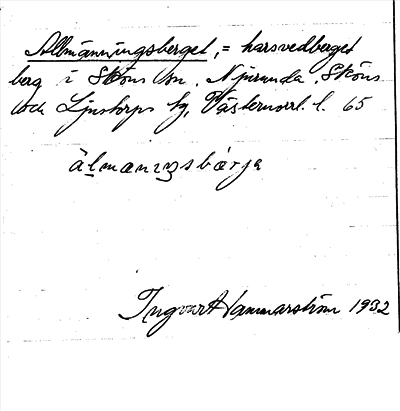 Allmänningsberget, = harsvedberget
berg i Sköns sn. Njurunda, Sköns
och Ljustorps tg, Västernorrl. l. 65
álmæniŋsbærja
Ingvart Hammarström 1932